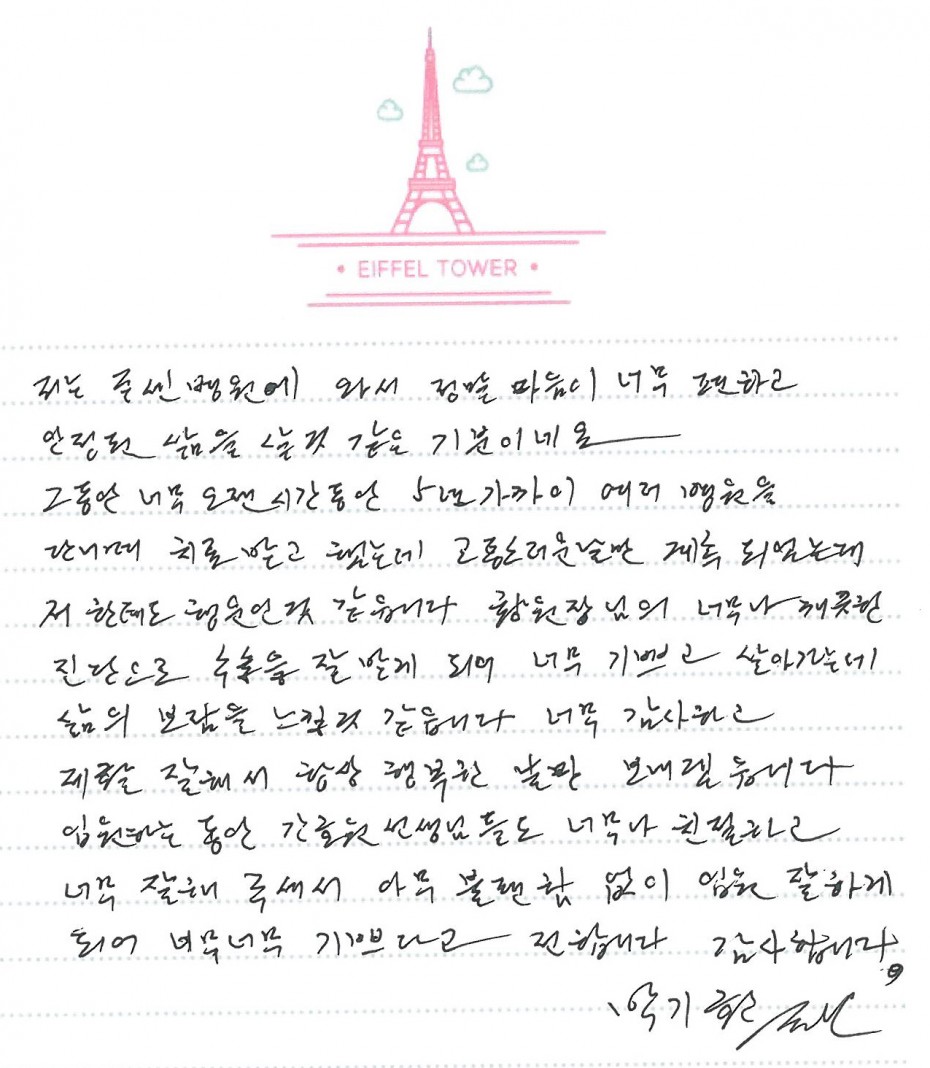 • EIFFEL TOWER •
저는 굳센병원에 와서 정말 마음이 너무 편하고
안정된 삶을 살것 같은 기분이네요
그동안 너무 오랜시간동안 5년가까이 여러 병원을
다니며 치료 받고 했는데 고통스러운날만 계속 되었는데
저 한테도 행운인것 같습니다 황원장님의 너무나 깨끗한
진단으로 수술을 잘 받게 되어 너무 기쁘고 살아가는데
삶의 보람을 느낄것 같습니다 너무 감사하고
재활을 잘해서 항상 행복한 날만 보내렵니다
입원하는 동안 간호원선생님들도 너무나 친절하고
너무 잘해 주셔서 아무 불편함 없이 입원 잘하게
되어 너무너무 기쁘다고 전합니다 감사합니다